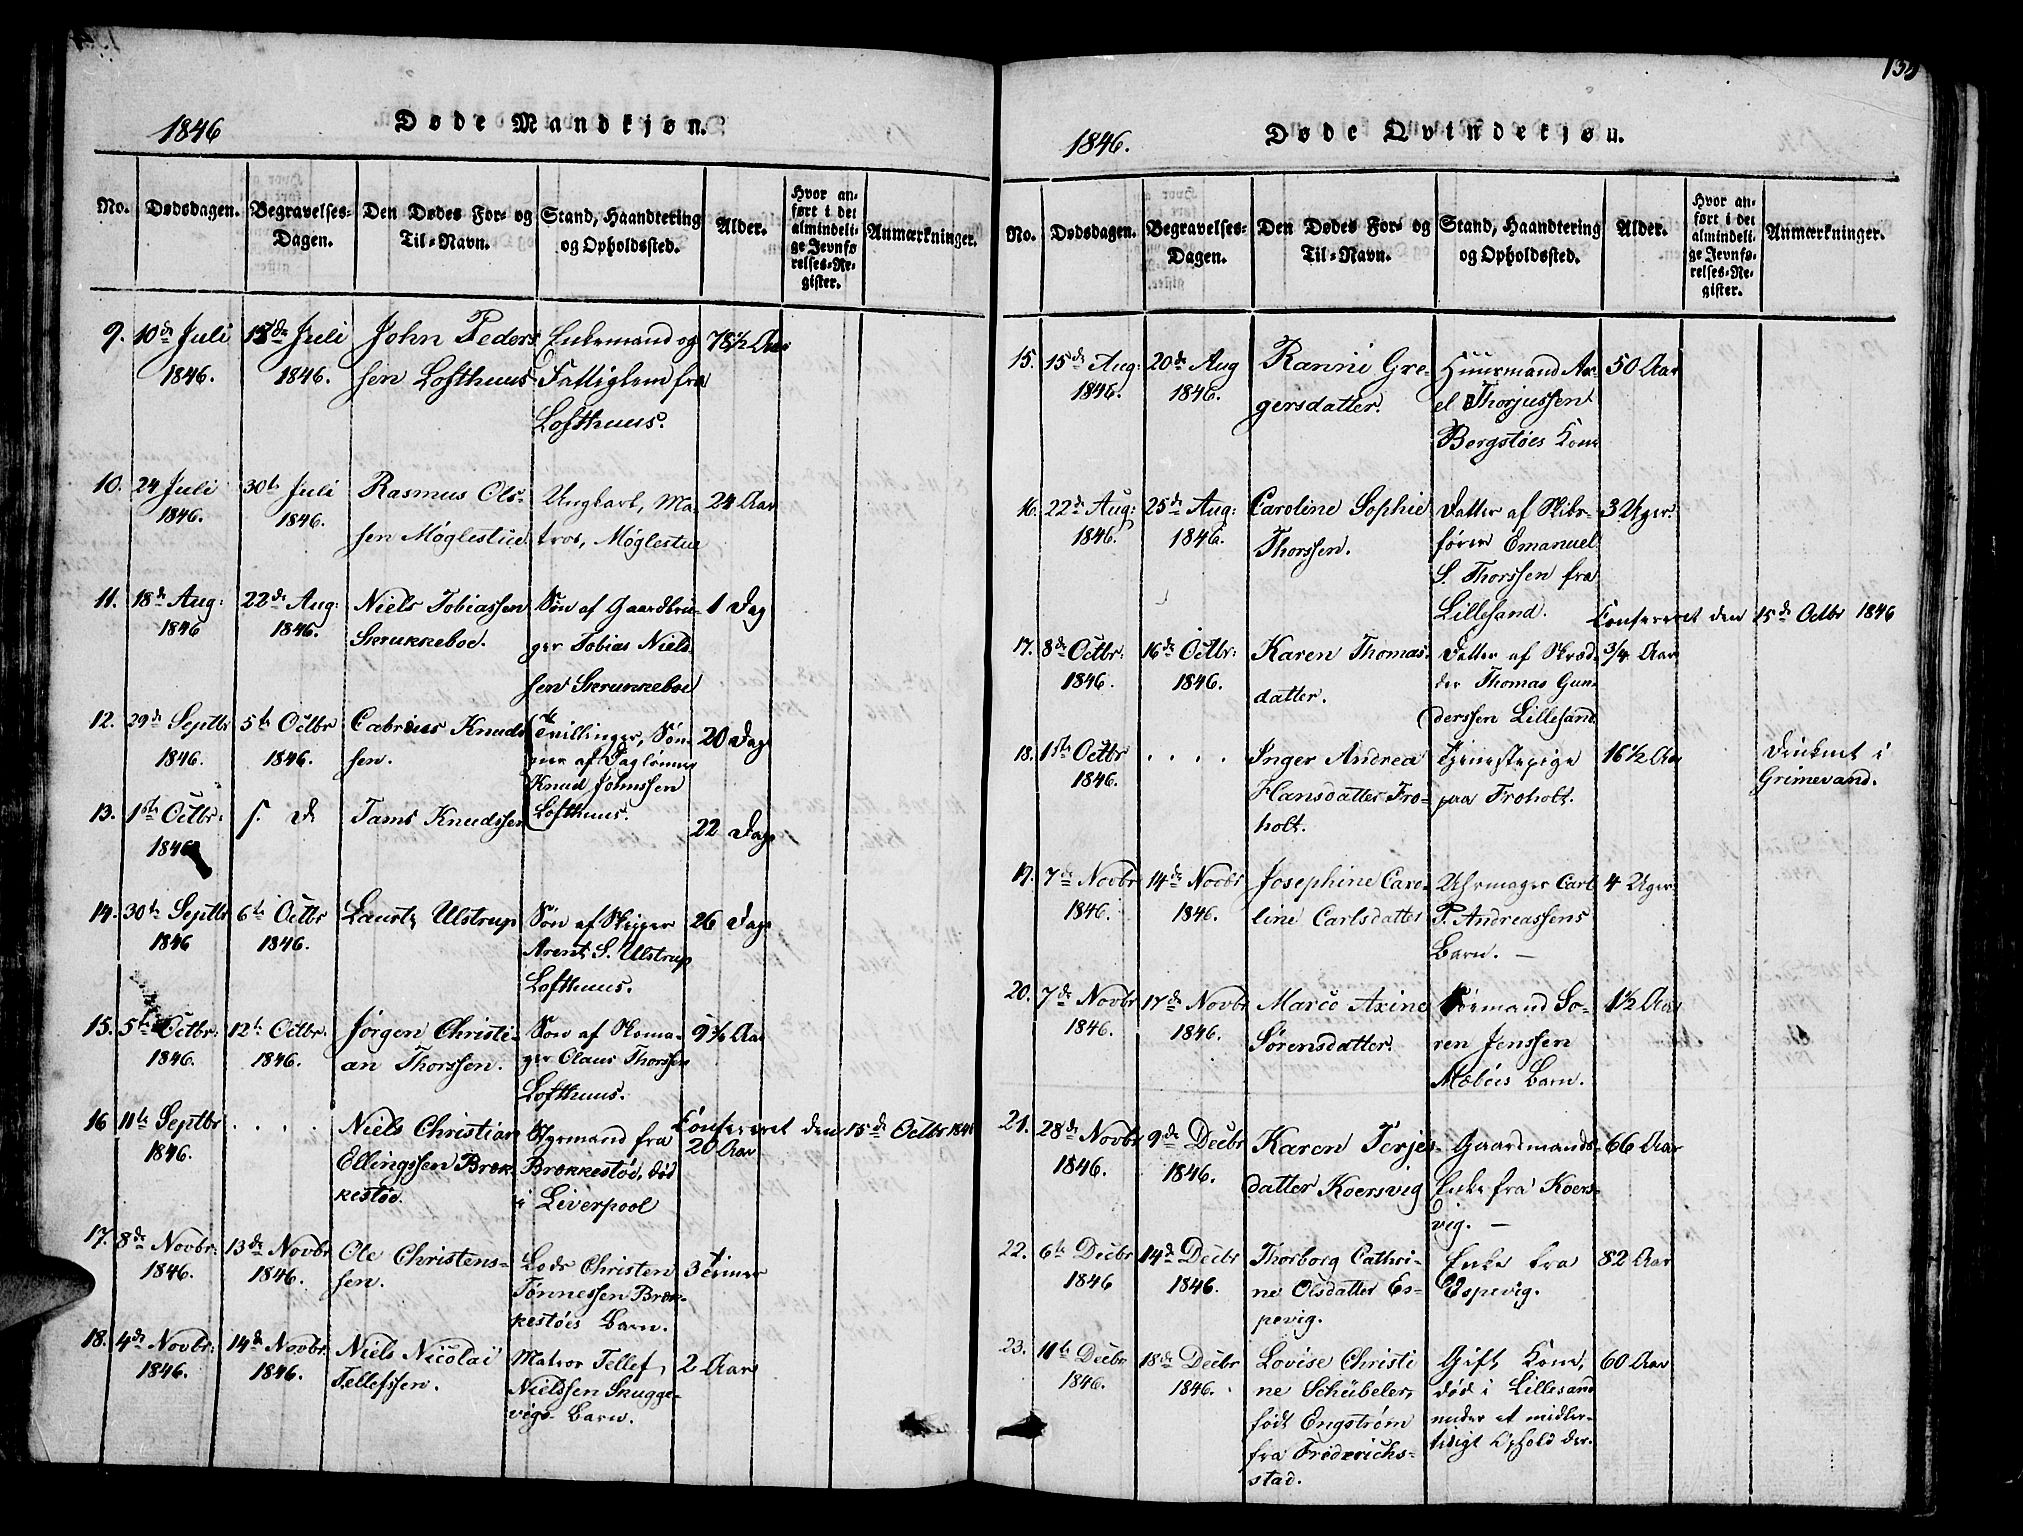 1846
Døde Mandkjøn.
No.
Dødsdagen.
Begravelses-
Dagen.
Den Dødes For- og
Til-Navn.
Stand, Haandtering
og Opholdssted.
Alder.
Hvor an-
ført i det
almindeli-
ge Jevnfø
relses-Re-
gister.
Anmærkninger.
9. 10de Juli
1846.
1846.
John Peders
sen Lofthuus
Enkemand og
Fattiglem fra
Lofthuus.
78½ Aar
10. 24 Juli
1846.
30te Juli
1846.
Rasmus Ols-
sen Møglestue
Ungkarl, Ma-
tros, Møglestue
24 Aar
11. 18de Aug:
1846
22de Aug:
1846.
Niels Tobiassen
Skrukkeboe.
Søn af Gaardbru-
ger Tobias Niels
sen Skrukkeboe
1 Dag
12. 29de Septbr
1846.
5te Octbr
1846.
Cabrius Knuds
sen.
Tvillinger, Søn-
ner af Daglønner
Knud Johnssen
Lofthuus.
20 Dage
13. 1ste Octbr:
1846
s. D
Tams Knudssen
22 Dage
14. 30te Septbr
1846
6te Octbr
1846.
Lauritz Ulstrup
Søn af Skipper
Arent S. Ulstrup
Lofthuus.
26 Dage
15. 5te Octbr:
1846.
12te Octbr:
1846.
Jørgen Christi-
an Thorssen.
Søn af Skoma-
ger Olaus Thorssen
Lofthuus.
9¾ Aar
16 11te Septbr
1846.
. . . .
Niels Christian
Ellingssen Bræk
kestøe.
Styrmand fra
Brækkestøe, død
i Liverpool
Confereret den 15de Octbr 1846
20 Aar
17. 8de Novbr:
1846.
13de Novbr
1846.
Ole Christens-
sen.
Lods Christen
Tønnessen Bræk-
kestøes Barn.
3 Timer
18. 4de Novbr:
1846.
14de Novbr:
1846.
Niels Nicolai
Tellefssen.
Matros Tellef
Nielssen Skugge-
vigs Barn.
2 Aar
1846.
Døde Qvindekjøn.
No.
Dødsdagen.
Begravelses-
Dagen.
Den Dødes For- og
Til-Navn.
Stand, Haandtering
og Opholdssted.
Alder.
Hvor an-
ført i det
almindeli-
ge Jevnfø-
relses-Re-
gister.
Anmærkninger.
15. 15de Aug:
1846.
20de Aug
1846.
Ranni Gre-
gersdatter.
Huusmand Ax-
el Thorjussen
Bergstøes Kone
50 Aar
16. 22de Aug:
1846.
25de Aug:
1846.
Caroline Sophie
Thorssen.
Datter af Skibs-
fører Emanuel
S. Thorssen fra
Lillesand.
3 Uger.
Confereret den 15de Octbr 1846
17. 8de Octbr:
1846.
16de Octbr:
1846.
Karen Thomas-
datter.
Datter af Skræd-
der Thomas Gun-
derssen Lillesand
3/4 Aar
18. 1ste Octbr
1846.
. . . .
Inger Andrea
Hansdatter Fro-
holt.
Tjenestepige
paa Froholt.
16½ Aar
Druknet i
Grimevand.
19. 7de Novbr
1846.
14de Novbr
1846.
Josephine Caro-
line Carlsdatter
Uhrmager Carl
P. Andreassens
Barn. —
4 Uger
20. 7de Novbr
1846.
17de Novbr
1846.
Maren Axine
Sørensdatter.
Formand Sø-
ren Jenssen
Mæbøes Barn.
1½ Aar
21. 28de Novbr
1846.
9de Decbr
1846.
Karen Terjes-
datter Koersvig
Gaardmands-
Enke fra Koers-
vig. —
66 Aar
22. 6te Decbr
1846
14de Decbr
1846.
Thorborg Cathri-
ne Olsdatter Es-
pevig.
Enke fra
Espevig.
82 Aar
23. 11te Decbr
1846.
18de Decbr
1846.
Lovise Christi
ne Schübeler,
født Engstrøm
fra Frederichs-
stad.
Gift Kone,
død i Lillesand
under et midler-
tidigt Ophold der.
60 Aar